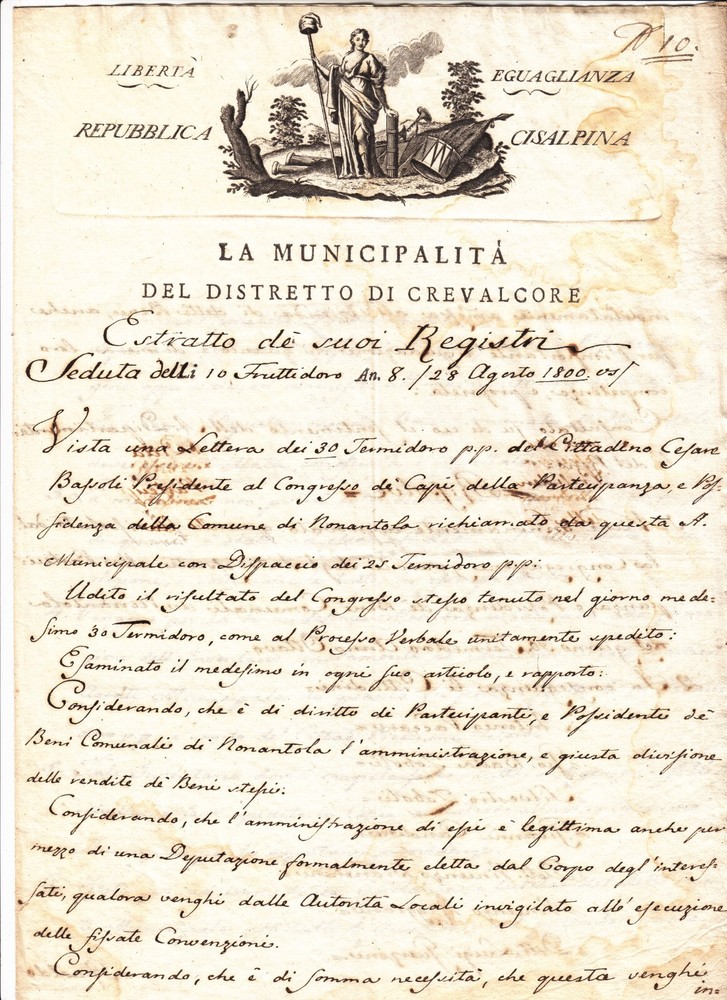 N 10.
LIBERTÀ EGUAGLIANZA
REPUBBLICA CISALPINA
LA MUNICIPALITÀ
DEL DISTRETTO DI CREVALCORE
Estratto de suoi Registri
Seduta delli 10 Fruttidoro An. 8. /28 Agosto 1800. vs/
Vista una Lettera dei 30 Termidoro p.p. del Cittadino Cesare
Bassoli Presidente al Congresso di Capi della Partecipanza, e Pos-
sidenza della Comune di Nonantola richiamato da questa A.
Municipale con Dispaccio dei 25 Termidoro p.p:
Udito il risultato del Congresso stesso tenuto nel giorno mede-
simo 30 Termidoro, come al Processo Verbale unitamente spedito:
Esaminato il medesimo in ogni suo articolo, e rapporto:
Considerando, che è di diritto di Partecipanti, e Possidenti de
Beni Comunali di Nonantola l'amministrazione, e giusta divisione
delle rendite de Beni stessi:
Considerando, che l'amministrazione di essi è legittima anche per
mezzo di una Deputazione formalmente eletta dal Corpo degl'interes-
sati, qualora venghi dalle Autorità Locali invigilato all'esecuzione
delle fissate Convenzioni.
Considerando, che è di somma necessità, che questa venghi
in=